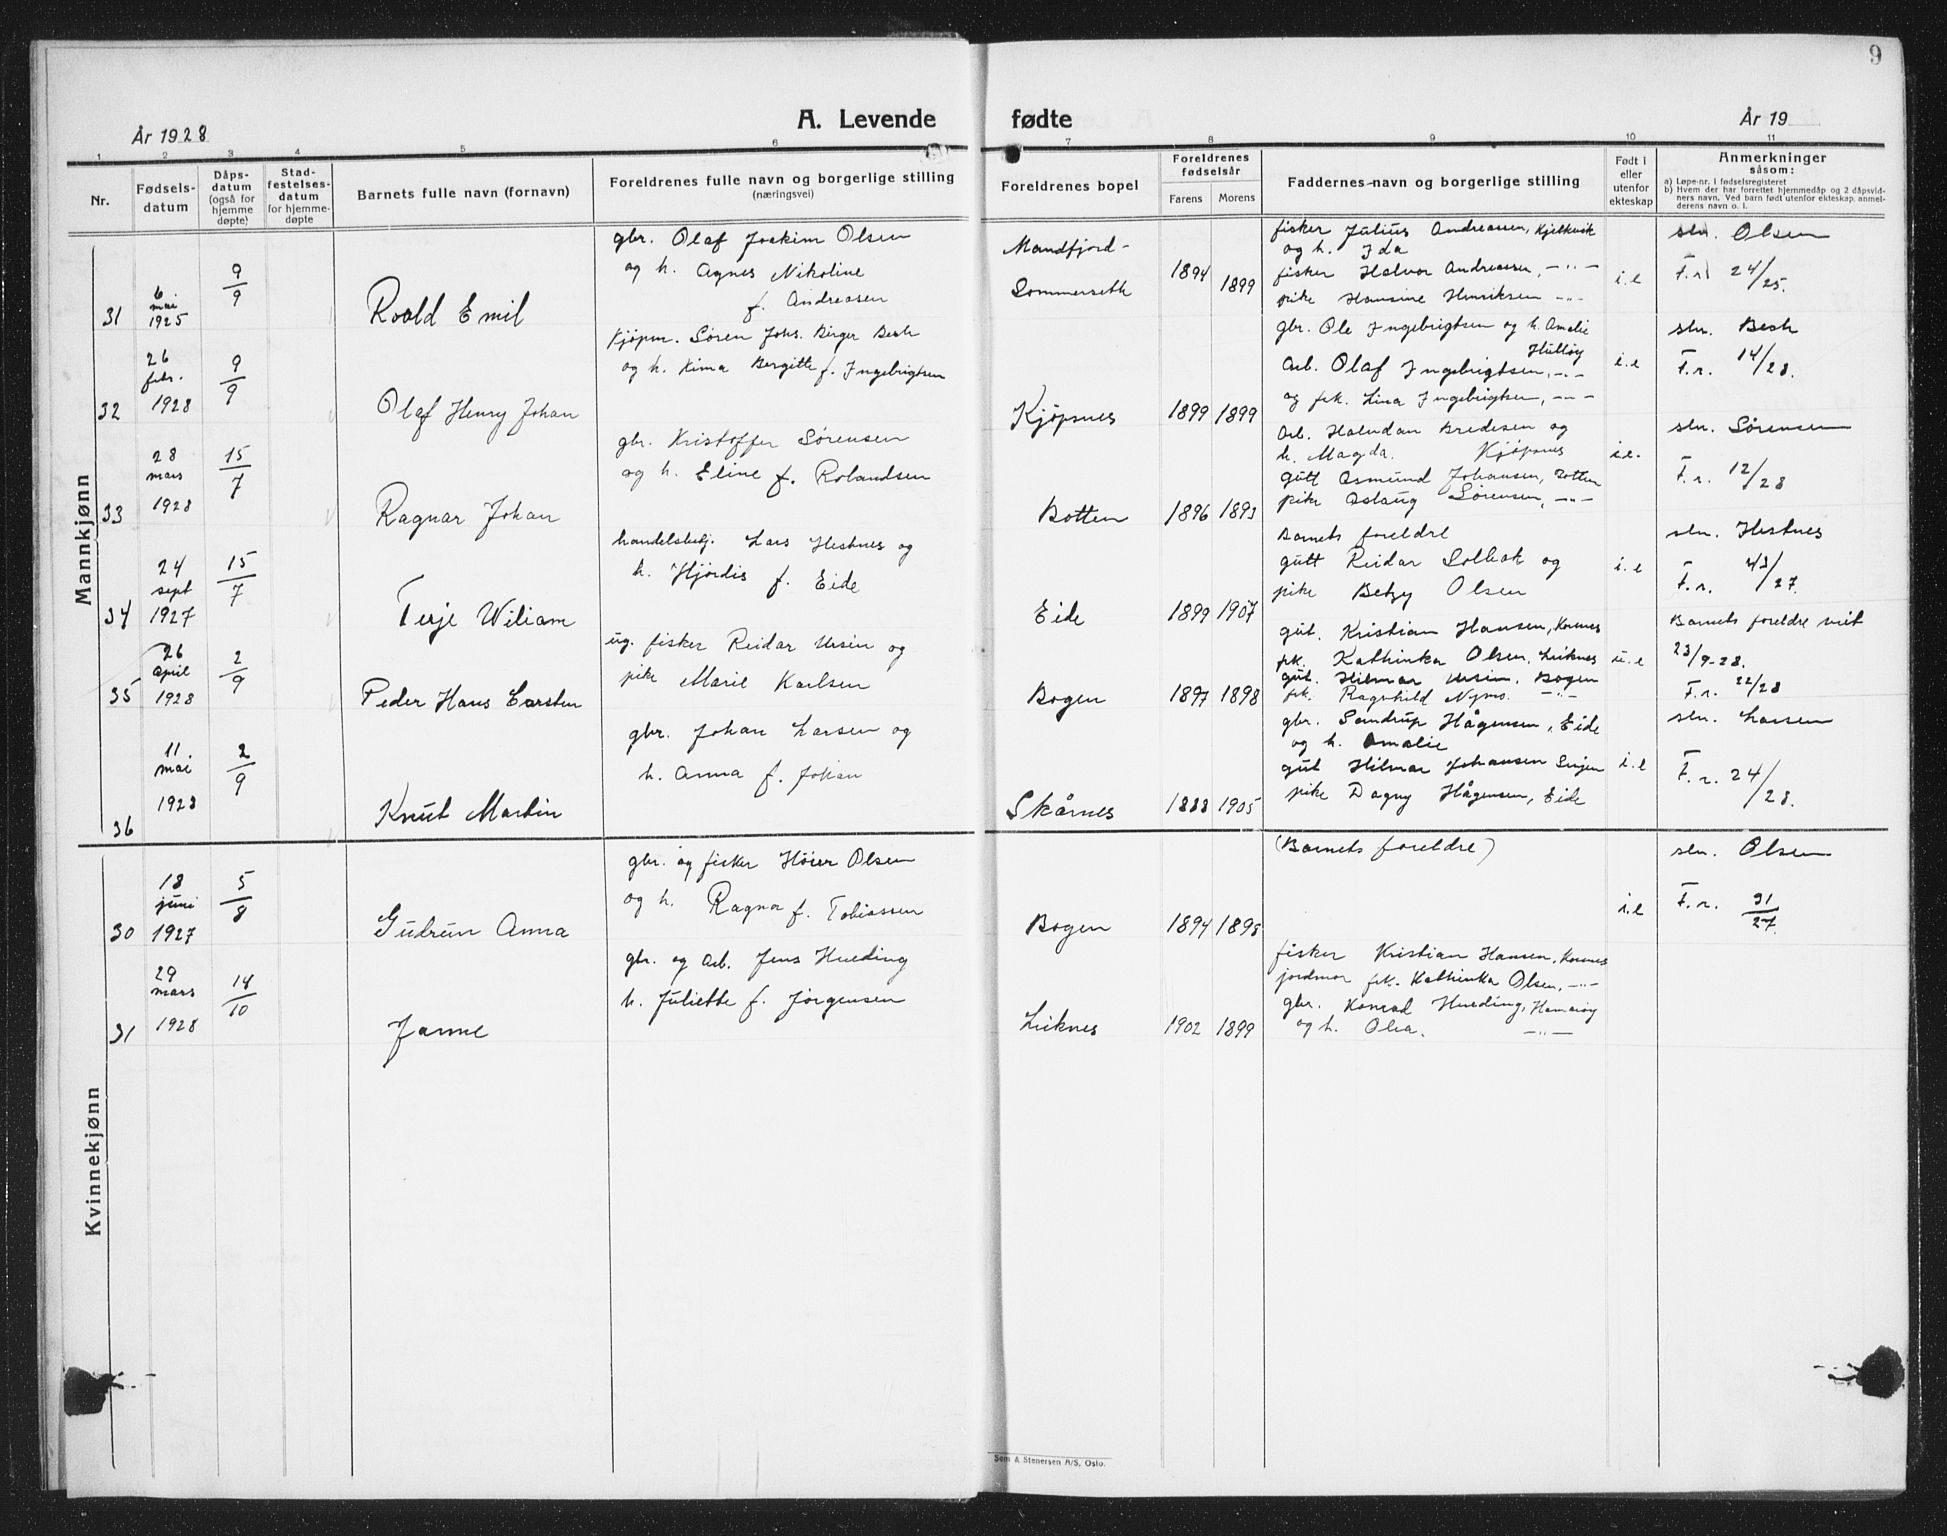 9
År 1928
A. Levende fødte
År 19
1 2 3 4 5 6 7 8 9 10 11
Nr.
Fødsels-
datum
Dåps-
datum
(også for
hjemme
døpte)
Stad-
festelses-
datum
for hjemme-
døpte
Barnets fulle navn (fornavn)
Foreldrenes fulle navn og borgerlige stilling
(næringsvei)
Foreldrenes bopel
Foreldrenes
fødselsår
Farens
Morens
Faddernes navn og borgerlige stilling
Født i
eller
utenfor
ekteskap
Anmerkninger
såsom:
a) Løpe-nr. i fødselsregisteret
b) Hvem der har forrettet hjemmedåp og 2 dåpsvid-
ners navn. Ved barn født utenfor ekteskap anmel-
derens navn o. l.
Mannkjønn
31
6
mai
1925
9/9
Roald Emil
gbr. Olaf Joakim Olsen
og h. Agnes Nikoline
f. Andreasen
Mandfjord-
Sommerseth
1894 1899
fisker Julius Andreassen, Kjelkvik
og h. Ida
fisker Halvor Andreassen, -"-
pike Hansine Henriksen -"-
i.e
sln. Olsen
F.r. 24/25.
32
26
febr.
1928
9/9
Olaf Henry Johan
Kjøpm. Søren Johs. Birger Besh
og h. Kima Bergitte f. Ingebrigtsen
Kjøpsnes
1899 1899
gbr. Ole Ingebrigtsen og h. Amalie
Hulløy
Arb. Olaf Ingebrigtsen, -"-
og frk. Lina Ingebrigtsen, -"-
i.e
sln. Besh
F.r. 14/28.
33
28
mars
1928
15/7
Ragnar Johan
gbr. Kristoffer Sørensen
og h. Eline f. Rolandsen
Botten
1896 1893
Arb. Halvdan Bredesen og
h. Magda. Kjøpsnes
gutt Asmund Johansen, Botten
pike Aslaug Sørensen, -"-
i.e.
sln. Sørensen
F.r. 12/28
34
24
sept
1927
15/7
Terje Wiliam
handelsbetj. Lars Hestnes og
h. Hjørdis f. Eide
Eide
1899 1907
Barnets foreldre
gutt Reidar Solbak og
pike Betzy Olsen
i.e
sln. Hestnes
F.r. 43/27.
35
26
april
1928
2/9
Peder Hans Carsten
ug. fisker Reidar Ursin og
pike Marie Karlsen
Bogen
1897 1898
gut. Kristian Hansen, Korsnes
frk. Kathinka Olsen, Liknes
gut. Hilmar Ursin, Bogen
frk. Ragnhild Nymo. -"-
u.e
Barnets foreldre viet
23/9-28.
F.r. 22/28
36
11
mai
1928
2/9
Knut Martin
gbr. Johan Larsen og
h. Anna f. Johan
Skårnes
1888 1905
gbr. Sandrup Hågensen, Eide
og h. Amalie
gut Hilmar Johansen
pike Dagny Hågensen, Eide
i.e
sln. Larsen
F.r. 24/28.
Kvinnekjønn
30
18
juni
1927
5/8
Gudrun Anna
gbr. og fisker Høier Olsen
og h. Ragna f. Tobiassen
Bogen
1894 1898
(Barnets foreldre)
i.e
sln. Olsen
F.r. 31/27.
31
29
mars
1928
14/10
Janne
gbr. og Arb. Jens Hveding
h. Juliette f. Jørgensen
Liknes
1902 1899
fisker Kristian Hansen, Korsnes
jordmor frk. Kathinka Olsen, -"-
gbr. Konrad Hveding, Hamarøy
og h. Olea. -"-
Sem & Stenersen A/S, Oslo.